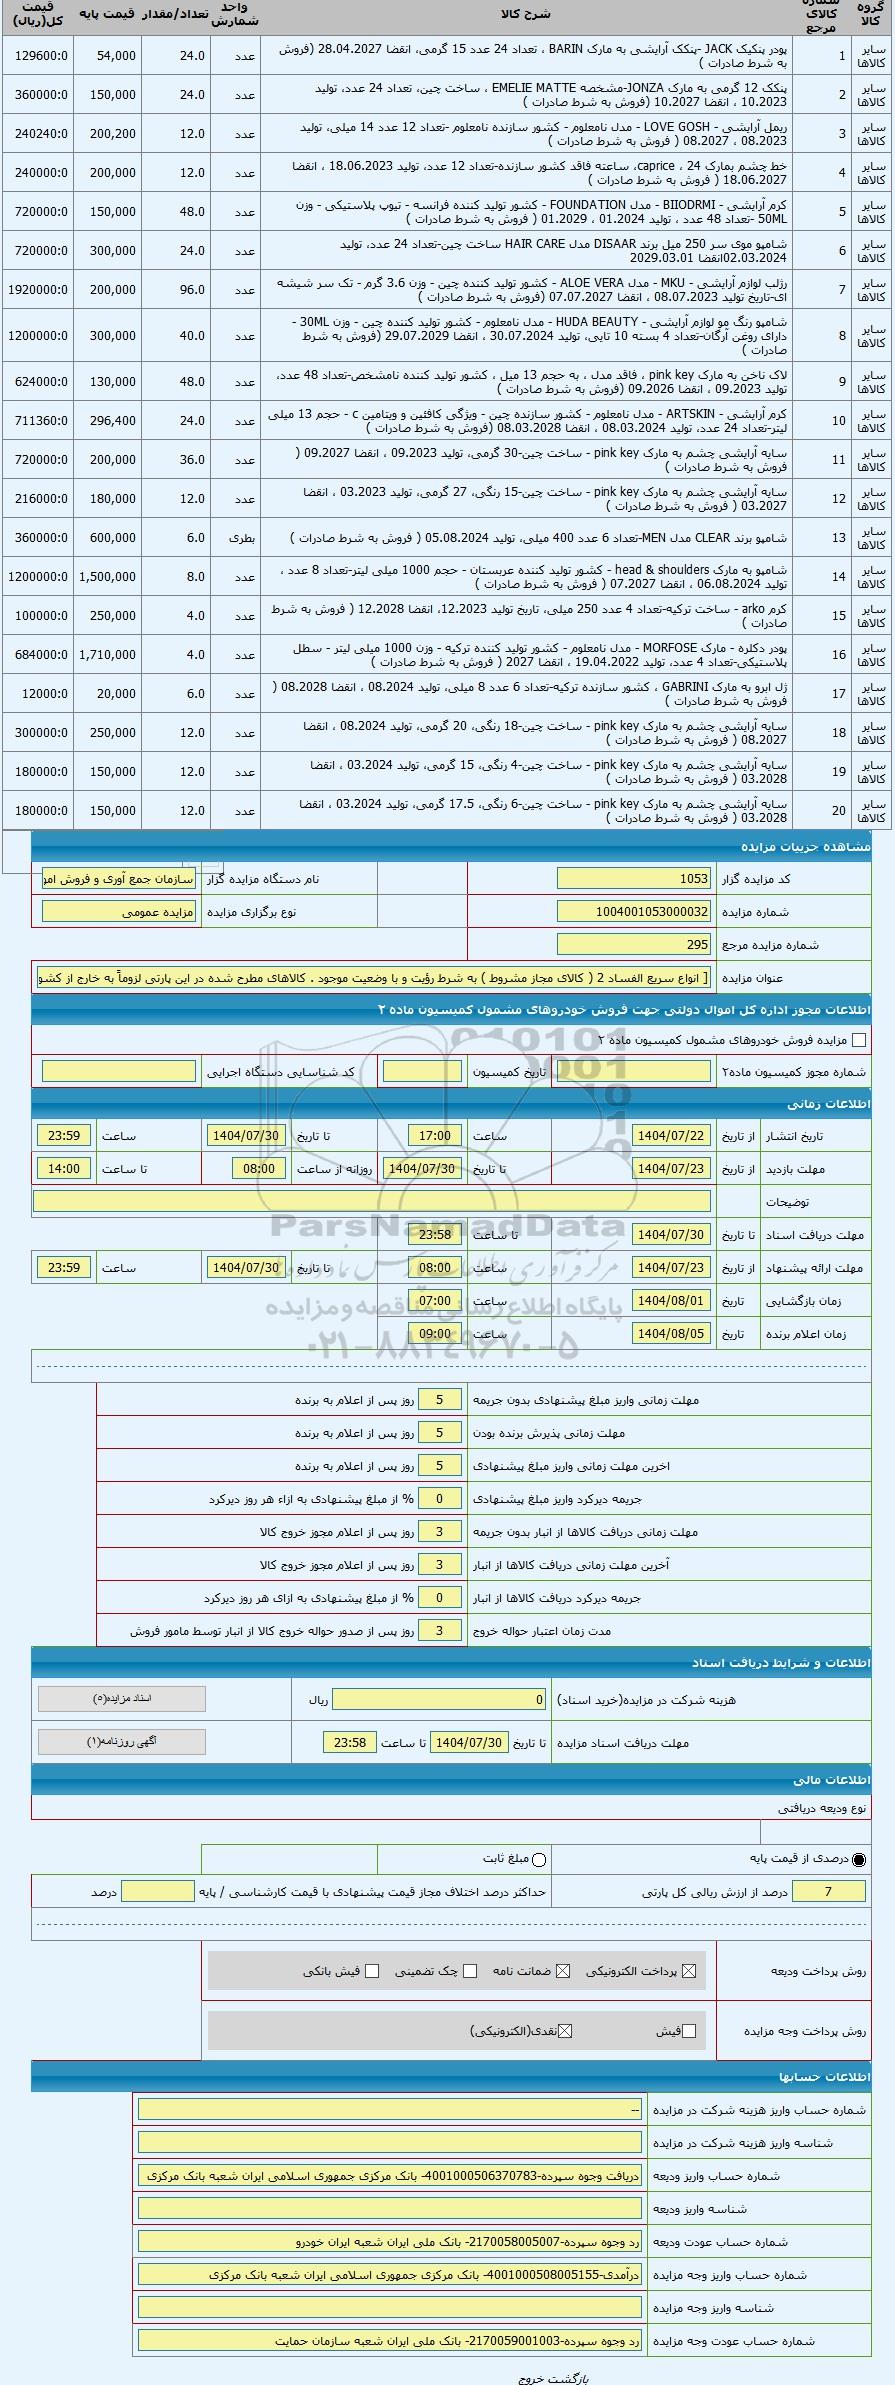 گروه کالا | شماره کالای مرجع | شرح کالا | واحد شمارش | تعداد/مقدار | قیمت پایه | قیمت کل(ریال)
سایر کالاها | 1 | پودر پنکیک JACK -پنکک آرایشی به مارک BARIN ، تعداد 24 عدد 15 گرمی، انقضا 28.04.2027 (فروش به شرط صادرات ) | عدد | 24.0 | 54,000 | 129600:0
سایر کالاها | 2 | پنکک 12 گرمی به مارک JONZA-مشخصه EMELIE MATTE ، ساخت چین، تعداد 24 عدد، تولید 10.2023 ، انقضا 10.2027 (فروش به شرط صادرات ) | عدد | 24.0 | 150,000 | 360000:0
سایر کالاها | 3 | ریمل آرایشی - LOVE GOSH - مدل نامعلوم - کشور سازنده نامعلوم -تعداد 12 عدد 14 میلی، تولید 08.2023 ، 08.2027 ( فروش به شرط صادرات ) | عدد | 12.0 | 200,200 | 240240:0
سایر کالاها | 4 | خط چشم بمارک caprice ، 24، ساعته فاقد کشور سازنده-تعداد 12 عدد، تولید 18.06.2023 ، انقضا 18.06.2027 ( فروش به شرط صادرات ) | عدد | 12.0 | 200,000 | 240000:0
سایر کالاها | 5 | کرم آرایشی - BIIODRMI - مدل FOUNDATION - کشور تولید کننده فرانسه - تیوپ پلاستیکی - وزن 50ML -تعداد 48 عدد ، تولید 01.2024 ، 01.2029 ( فروش به شرط صادرات ) | عدد | 48.0 | 150,000 | 720000:0
سایر کالاها | 6 | شامپو موی سر 250 میل برند DISAAR مدل HAIR CARE ساخت چین-تعداد 24 عدد، تولید 02.03.2024انقضا 2029.03.01 | عدد | 24.0 | 300,000 | 720000:0
سایر کالاها | 7 | رژلب لوازم آرایشی - MKU - مدل ALOE VERA - کشور تولید کننده چین - وزن 3.6 گرم - تک سر شیشه ای-تاریخ تولید 08.07.2023 ، انقضا 07.07.2027 (فروش به شرط صادرات ) | عدد | 96.0 | 200,000 | 1920000:0
سایر کالاها | 8 | شامپو رنگ مو لوازم آرایشی - HUDA BEAUTY - مدل نامعلوم - کشور تولید کننده چین - وزن 30ML - دارای روغن آرگان-تعداد 4 بسته 10 تایی، تولید 30.07.2024 ، انقضا 29.07.2029 (فروش به شرط صادرات ) | عدد | 40.0 | 300,000 | 1200000:0
سایر کالاها | 9 | لاک ناخن به مارک pink key ، فاقد مدل ، به حجم 13 میل ، کشور تولید کننده نامشخص-تعداد 48 عدد، تولید 09.2023 ، انقضا 09.2026 (فروش به شرط صادرات ) | عدد | 48.0 | 130,000 | 624000:0
سایر کالاها | 10 | کرم آرایشی - ARTSKIN - مدل نامعلوم - کشور سازنده چین - ویژگی کافئین و ویتامین c - حجم 13 میلی لیتر-تعداد 24 عدد، تولید 08.03.2024 ، انقضا 08.03.2028 (فروش به شرط صادرات ) | عدد | 24.0 | 296,400 | 711360:0
سایر کالاها | 11 | سایه آرایشی چشم به مارک pink key - ساخت چین-30 گرمی، تولید 09.2023 ، انقضا 09.2027 ( فروش به شرط صادرات ) | عدد | 36.0 | 200,000 | 720000:0
سایر کالاها | 12 | سایه آرایشی چشم به مارک pink key - ساخت چین-15 رنگی، 27 گرمی، تولید 03.2023 ، انقضا 03.2027 ( فروش به شرط صادرات ) | عدد | 12.0 | 180,000 | 216000:0
سایر کالاها | 13 | شامپو برند CLEAR مدل MEN-تعداد 6 عدد 400 میلی، تولید 05.08.2024 ( فروش به شرط صادرات ) | بطری | 6.0 | 600,000 | 360000:0
سایر کالاها | 14 | شامپو به مارک head & shoulders - کشور تولید کننده عربستان - حجم 1000 میلی لیتر-تعداد 8 عدد ، تولید 06.08.2024 ، انقضا 07.2027 ( فروش به شرط صادرات ) | عدد | 8.0 | 1,500,000 | 1200000:0
سایر کالاها | 15 | کرم arko - ساخت ترکیه-تعداد 4 عدد 250 میلی، تاریخ تولید 12.2023، انقضا 12.2028 ( فروش به شرط صادرات ) | عدد | 4.0 | 250,000 | 100000:0
سایر کالاها | 16 | پودر دکلره - مارک MORFOSE - مدل نامعلوم - کشور تولید کننده ترکیه - وزن 1000 میلی لیتر - سطل پلاستیکی-تعداد 4 عدد، تولید 19.04.2022 ، انقضا 2027 ( فروش به شرط صادرات ) | عدد | 4.0 | 1,710,000 | 684000:0
سایر کالاها | 17 | ژل ابرو به مارک GABRINI ، کشور سازنده ترکیه-تعداد 6 عدد 8 میلی، تولید 08.2024 ، انقضا 08.2028 ( فروش به شرط صادرات ) | عدد | 6.0 | 20,000 | 12000:0
سایر کالاها | 18 | سایه آرایشی چشم به مارک pink key - ساخت چین-18 رنگی، 20 گرمی، تولید 08.2024 ، انقضا 08.2027 ( فروش به شرط صادرات ) | عدد | 12.0 | 250,000 | 300000:0
سایر کالاها | 19 | سایه آرایشی چشم به مارک pink key - ساخت چین-4 رنگی، 15 گرمی، تولید 03.2024 ، انقضا 03.2028 ( فروش به شرط صادرات ) | عدد | 12.0 | 150,000 | 180000:0
سایر کالاها | 20 | سایه آرایشی چشم به مارک pink key - ساخت چین-6 رنگی، 17.5 گرمی، تولید 03.2024 ، انقضا 03.2028 ( فروش به شرط صادرات ) | عدد | 12.0 | 150,000 | 180000:0
مشاهده جزییات مزایده
کد مزایده گزار 1053 نام دستگاه مزایده گزار سازمان جمع آوری و فروش امو
شماره مزایده 1004001053000032 نوع برگزاری مزایده مزایده عمومی
شماره مزایده مرجع 295
عنوان مزایده [ انواع سریع الفساد 2 ( کالای مجاز مشروط ) به شرط رؤیت و با وضعیت موجود . کالاهای مطرح شده در این پارتی لزوماً به خارج از کشو
اطلاعات مجوز اداره کل اموال دولتی جهت فروش خودروهای مشمول کمیسیون ماده ۲
مزایده فروش خودروهای مشمول کمیسیون ماده ۲
شماره مجوز کمیسیون ماده۲ تاریخ کمیسیون کد شناسایی دستگاه اجرایی
اطلاعات زمانی
تاریخ انتشار از تاریخ 1404/07/22 ساعت 17:00 تا تاریخ 1404/07/30 ساعت 23:59
مهلت بازدید از تاریخ 1404/07/23 تا تاریخ 1404/07/30 روزانه از ساعت 08:00 تا ساعت 14:00
توضیحات
مهلت دریافت اسناد تا تاریخ 1404/07/30 تا ساعت 23:58
مهلت ارائه پیشنهاد از تاریخ 1404/07/23 ساعت 08:00 تا تاریخ 1404/07/30 ساعت 23:59
زمان بازگشایی تاریخ 1404/08/01 ساعت 07:00
زمان اعلام برنده تاریخ 1404/08/05 ساعت 09:00
ParsNamadData
پایگاه اطلاع رسانی مناقصه و مزایده
۰۲۱-۸۸۳۴۹۶۷۰-۵
مهلت زمانی واریز مبلغ پیشنهادی بدون جریمه 5 روز پس از اعلام به برنده
مهلت زمانی پذیرش برنده بودن 5 روز پس از اعلام به برنده
اخرین مهلت زمانی واریز مبلغ پیشنهادی 5 روز پس از اعلام به برنده
جریمه دیرکرد واریز مبلغ پیشنهادی 0 % از مبلغ پیشنهادی به ازاء هر روز دیرکرد
مهلت زمانی دریافت کالاها از انبار بدون جریمه 3 روز پس از اعلام مجوز خروج کالا
آخرین مهلت زمانی دریافت کالاها از انبار 3 روز پس از اعلام مجوز خروج کالا
جریمه دیرکرد دریافت کالاها از انبار 0 % از مبلغ پیشنهادی به ازای هر روز دیرکرد
مدت زمان اعتبار حواله خروج 3 روز پس از صدور حواله خروج کالا از انبار توسط مامور فروش
اطلاعات و شرایط دریافت اسناد
هزینه شرکت در مزایده(خرید اسناد) 0 ریال اسناد مزایده(۵)
مهلت دریافت اسناد مزایده تا تاریخ 1404/07/30 تا ساعت 23:58 آگهی روزنامه(۱)
اطلاعات مالی
نوع ودیعه دریافتی
درصدی از قیمت پایه مبلغ ثابت
7 درصد از ارزش ریالی کل پارتی حداکثر درصد اختلاف مجاز قیمت پیشنهادی با قیمت کارشناسی / پایه درصد
روش پرداخت ودیعه پرداخت الکترونیکی ضمانت نامه چک تضمینی فیش بانکی
روش پرداخت وجه مزایده فیش نقدی(الکترونیکی)
اطلاعات حسابها
شماره حساب واریز هزینه شرکت در مزایده --
شناسه واریز هزینه شرکت در مزایده
شماره حساب واریز ودیعه دریافت وجوه سپرده-4001000506370783- بانک مرکزی جمهوری اسلامی ایران شعبه بانک مرکزی
شناسه واریز ودیعه
شماره حساب عودت ودیعه رد وجوه سپرده-2170058005007- بانک ملی ایران شعبه ایران خودرو
شماره حساب واریز وجه مزایده درآمدی-4001000508005155- بانک مرکزی جمهوری اسلامی ایران شعبه بانک مرکزی
شناسه واریز وجه مزایده
شماره حساب عودت وجه مزایده رد وجوه سپرده-2170059001003- بانک ملی ایران شعبه سازمان حمایت
بازگشت خروج